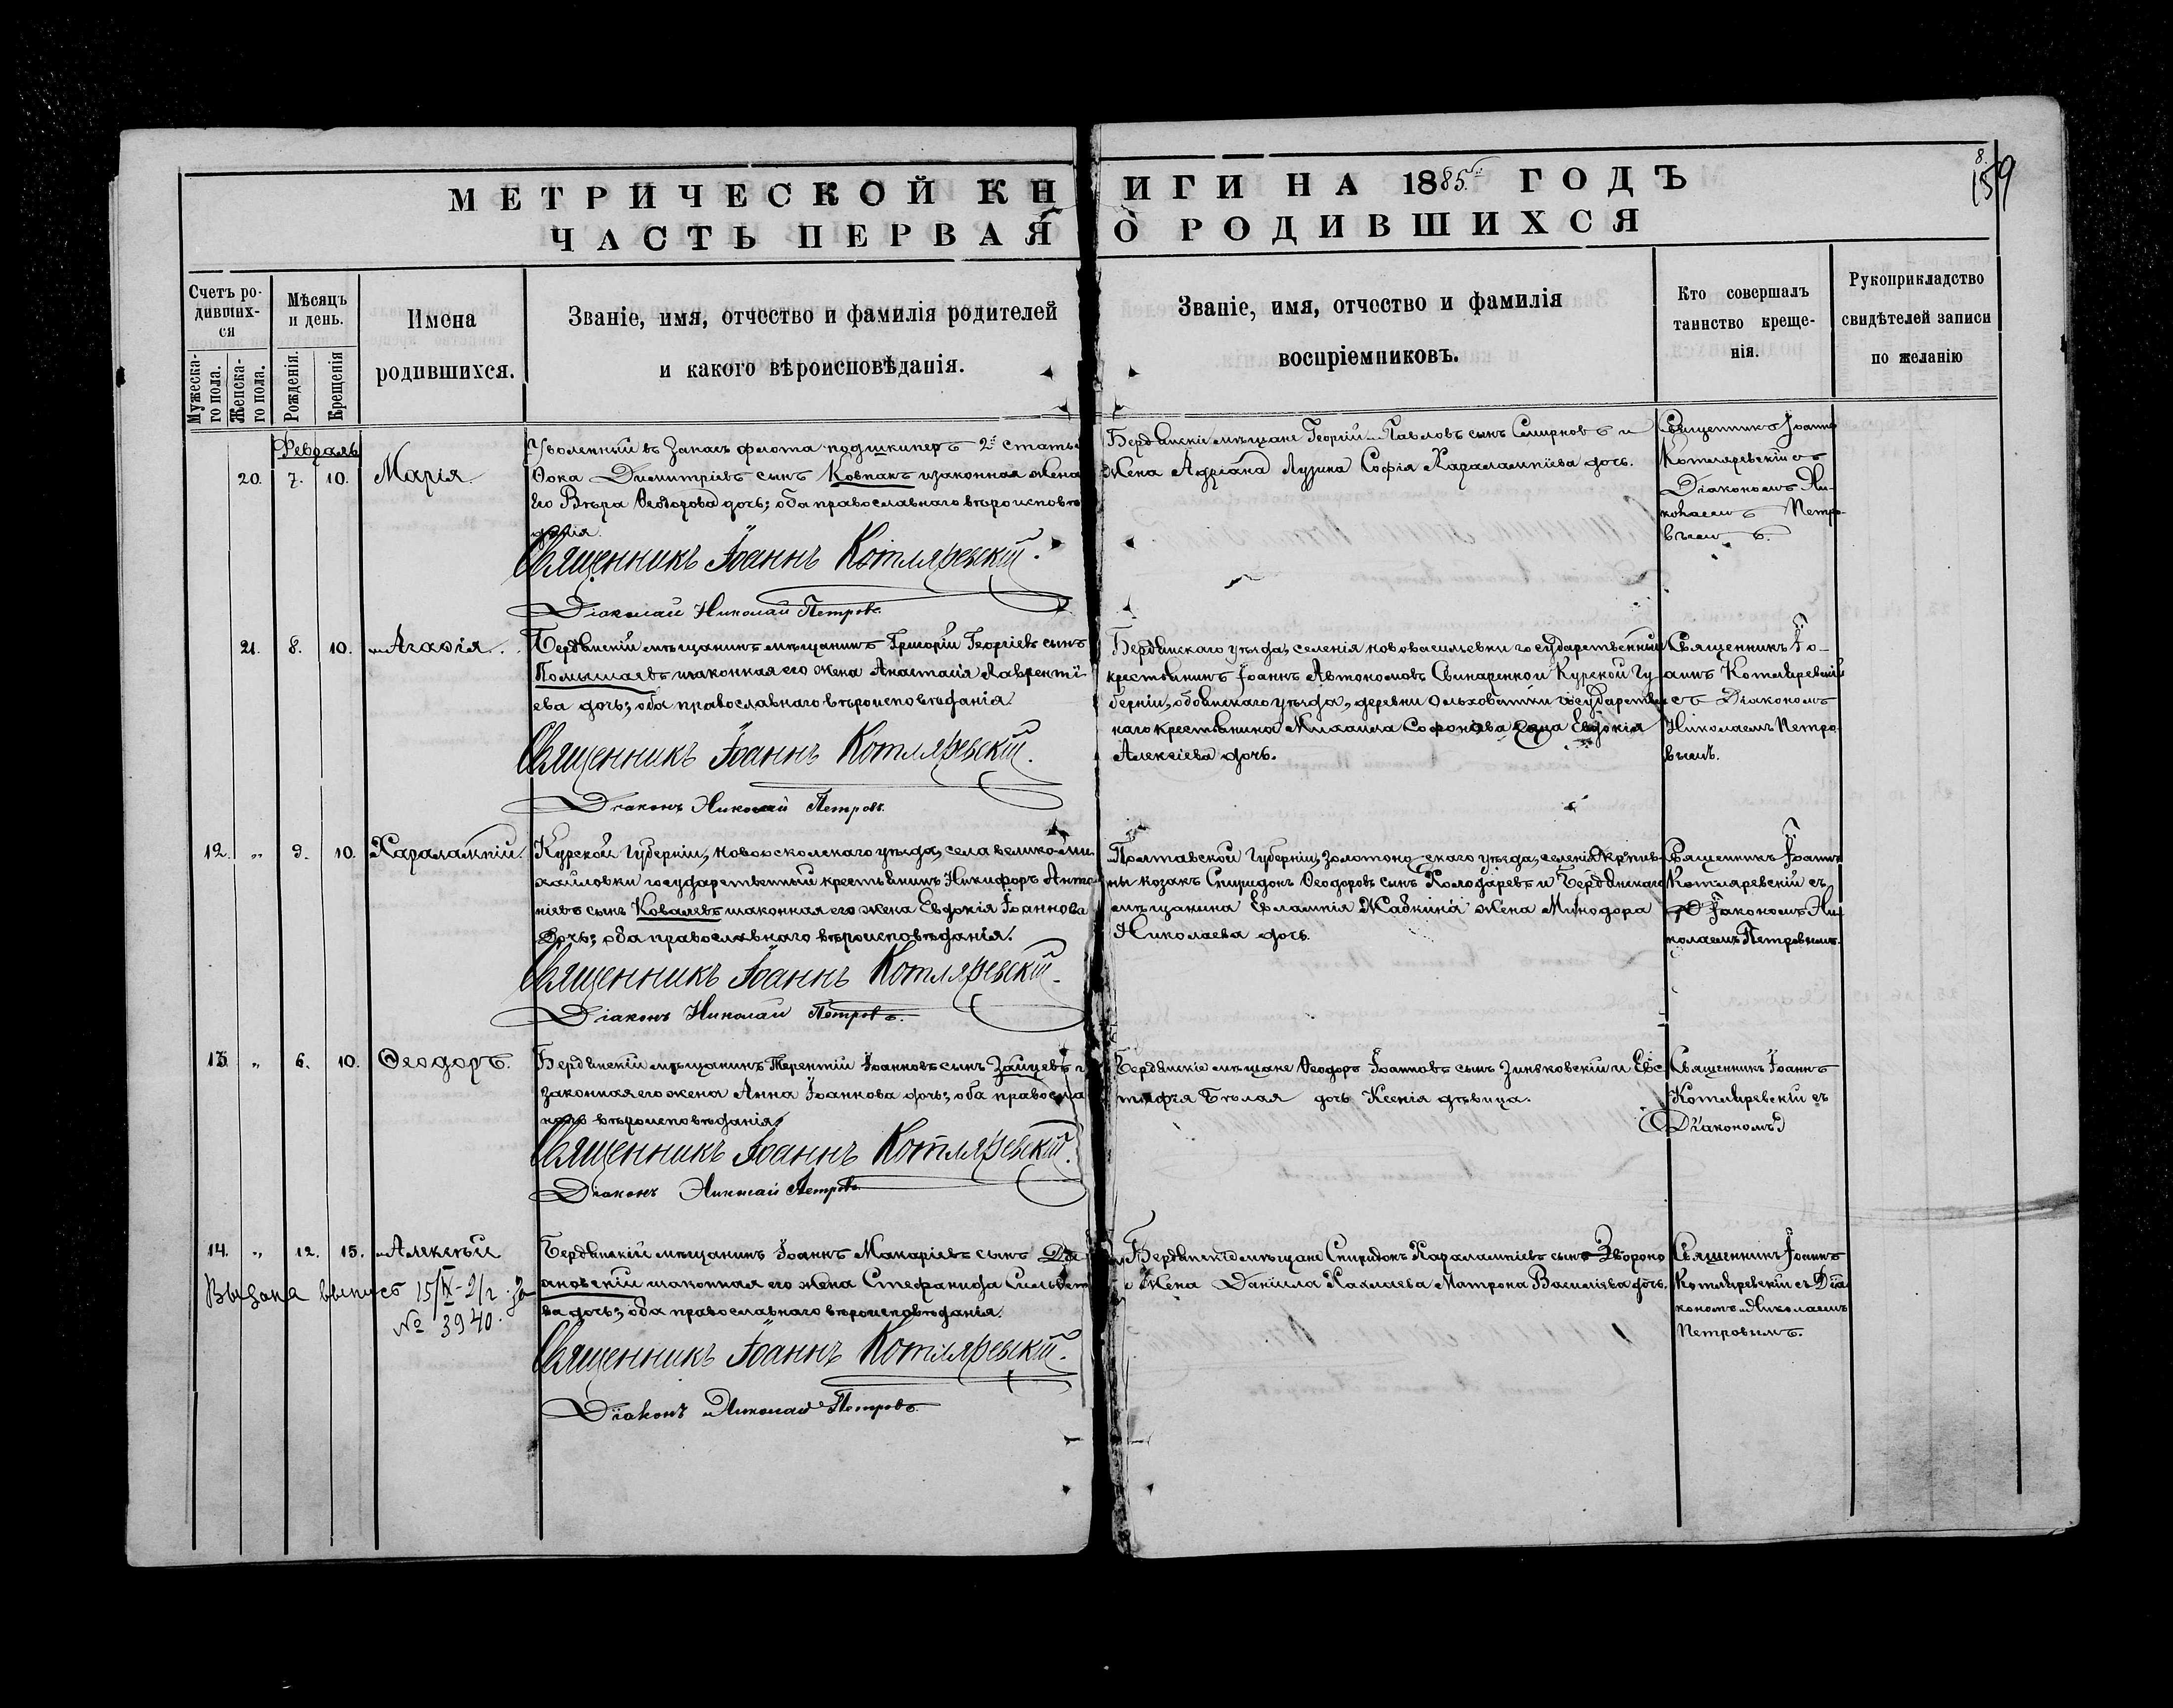 8.
159
МЕТРИЧЕСКОЙ КНИГИ НА 1885й ГОДЪ
ЧАСТЬ ПЕРВАЯ О РОДИВШИХСЯ
Счетъ ро-
дивших-
ся
Мужеска-
го пола.
Женска-
го пола.
Мѣсяцъ
и день.
Рожденія.
Крещенія
Имена
родившихся.
Званіе, имя, отчество и фамилія родителей
и какого вѣроисповѣданія.
Званіе, имя, отчество и фамилія
воспріемниковъ.
Кто совершалъ
таинство креще-
нія.
Рукоприкладство
свидѣтелей записи
по желанію
Февраль
20. 7. 10. Марія.
Уволенный въ Запасъ флота подшкиперъ 2й статьи
Ѳока Димитріевъ сынъ Ковпакъ изаконная жена
Его Вѣра Ѳеодорова дочь; оба православнаго вѣроисповѣ
данія.
Священникъ Іоаннъ Котляревскій.
Николай Петровъ.
Бердянскіе мѣщане Георгій Павловъ сынъ Смирновъ и
Жена Адріана Софія Харалампіева дочь.
Священникъ Іоаннъ
Котляревскій съ
Діакономъ Ни-
колаемъ Петро-
вымъ.
21. 8. 10. Агафія.
Бердянскій мѣщанинъ мѣщанинъ Григорій Георгіевъ сынъ
изаконная его жена Анастасія Лаврентї
ева дочь; оба православнаго вѣроисповѣданія.
Священникъ Іоаннъ Котляревскій.
Діаконъ Николай Петровъ.
Бердянскаго уѣзда, селенія нововасильевки государственный
крестьянинъ Іоаннъ Автономовъ Свинаренко и Курской Гу
берніи, обоянскаго уѣзда, деревни ольховатки государствен
наго крестьянина Михаила Софонова Евдокія
Алексіева дочь.
Священникъ Іо-
аннъ Котляревскій
съ Діакономъ
Николаемъ Петро
вымъ.
12. „ 9. 10. Харалампій.
Курской Губерніи, новооскольскаго уѣзда, села велико-ми
хайловки государственный крестьянинъ Никифоръ Анто
ніевъ сынъ Ковалевъ изаконная его жена Евдокія Іоаннова
Дочь; оба православнаго вѣроисповѣданія.
Священникъ Іоаннъ Котляревскій.
Діаконъ Николай Петровъ.
Полтавской Губерніи, Золотоно скаго уѣзда, селенія
козакъ Спиридонъ Ѳеодоровъ сынъ Колодаревъ и Бердянскаго
мѣщанина Евлампія Жабкина жена Минодора
Николаева дочь.
Священникъ Іоаннъ
Котляревскій съ
Діакономъ Ни
колаемъ Петровымъ.
13. „ 6. 10. Ѳеодоръ.
Бердянскій мѣщанинъ Терентій Іоанновъ сынъ Зайцевъ и
законная его жена Анна Іоаннова дочь; оба правосла
наго вѣроисповѣданія.
Священникъ Іоаннъ Котляревскій.
Діаконъ Николай Петровъ.
Бердянскіе мѣщане Ѳеодоръ Іоанновъ сынъ Зинковскій и Евс
Бѣлая дочь Ксенія дѣвица.
Священникъ Іоаннъ
Котляревскій съ
Діакономъ
14. „ 12. 15. Алексѣй
Выдана выпись 15/IX-2/г. за
№ 3940.
Бердянскій мѣщанинъ Іоаннъ Макаріевъ сынъ
ановскій изаконная его жена Стефанида Сильвест
ва дочь; оба православнаго вѣроисповѣданія.
Священникъ Іоаннъ Котляревскій.
Діаконъ Николай Петровъ.
Бердянскіе мѣщане Спиридонъ Харалампіевъ сынъ Звороно
и Жена Даніила Матрона Василіева дочь.
Священникъ Іоаннъ
Котляревскій съ Діа
кономъ Николаемъ
Петровымъ.